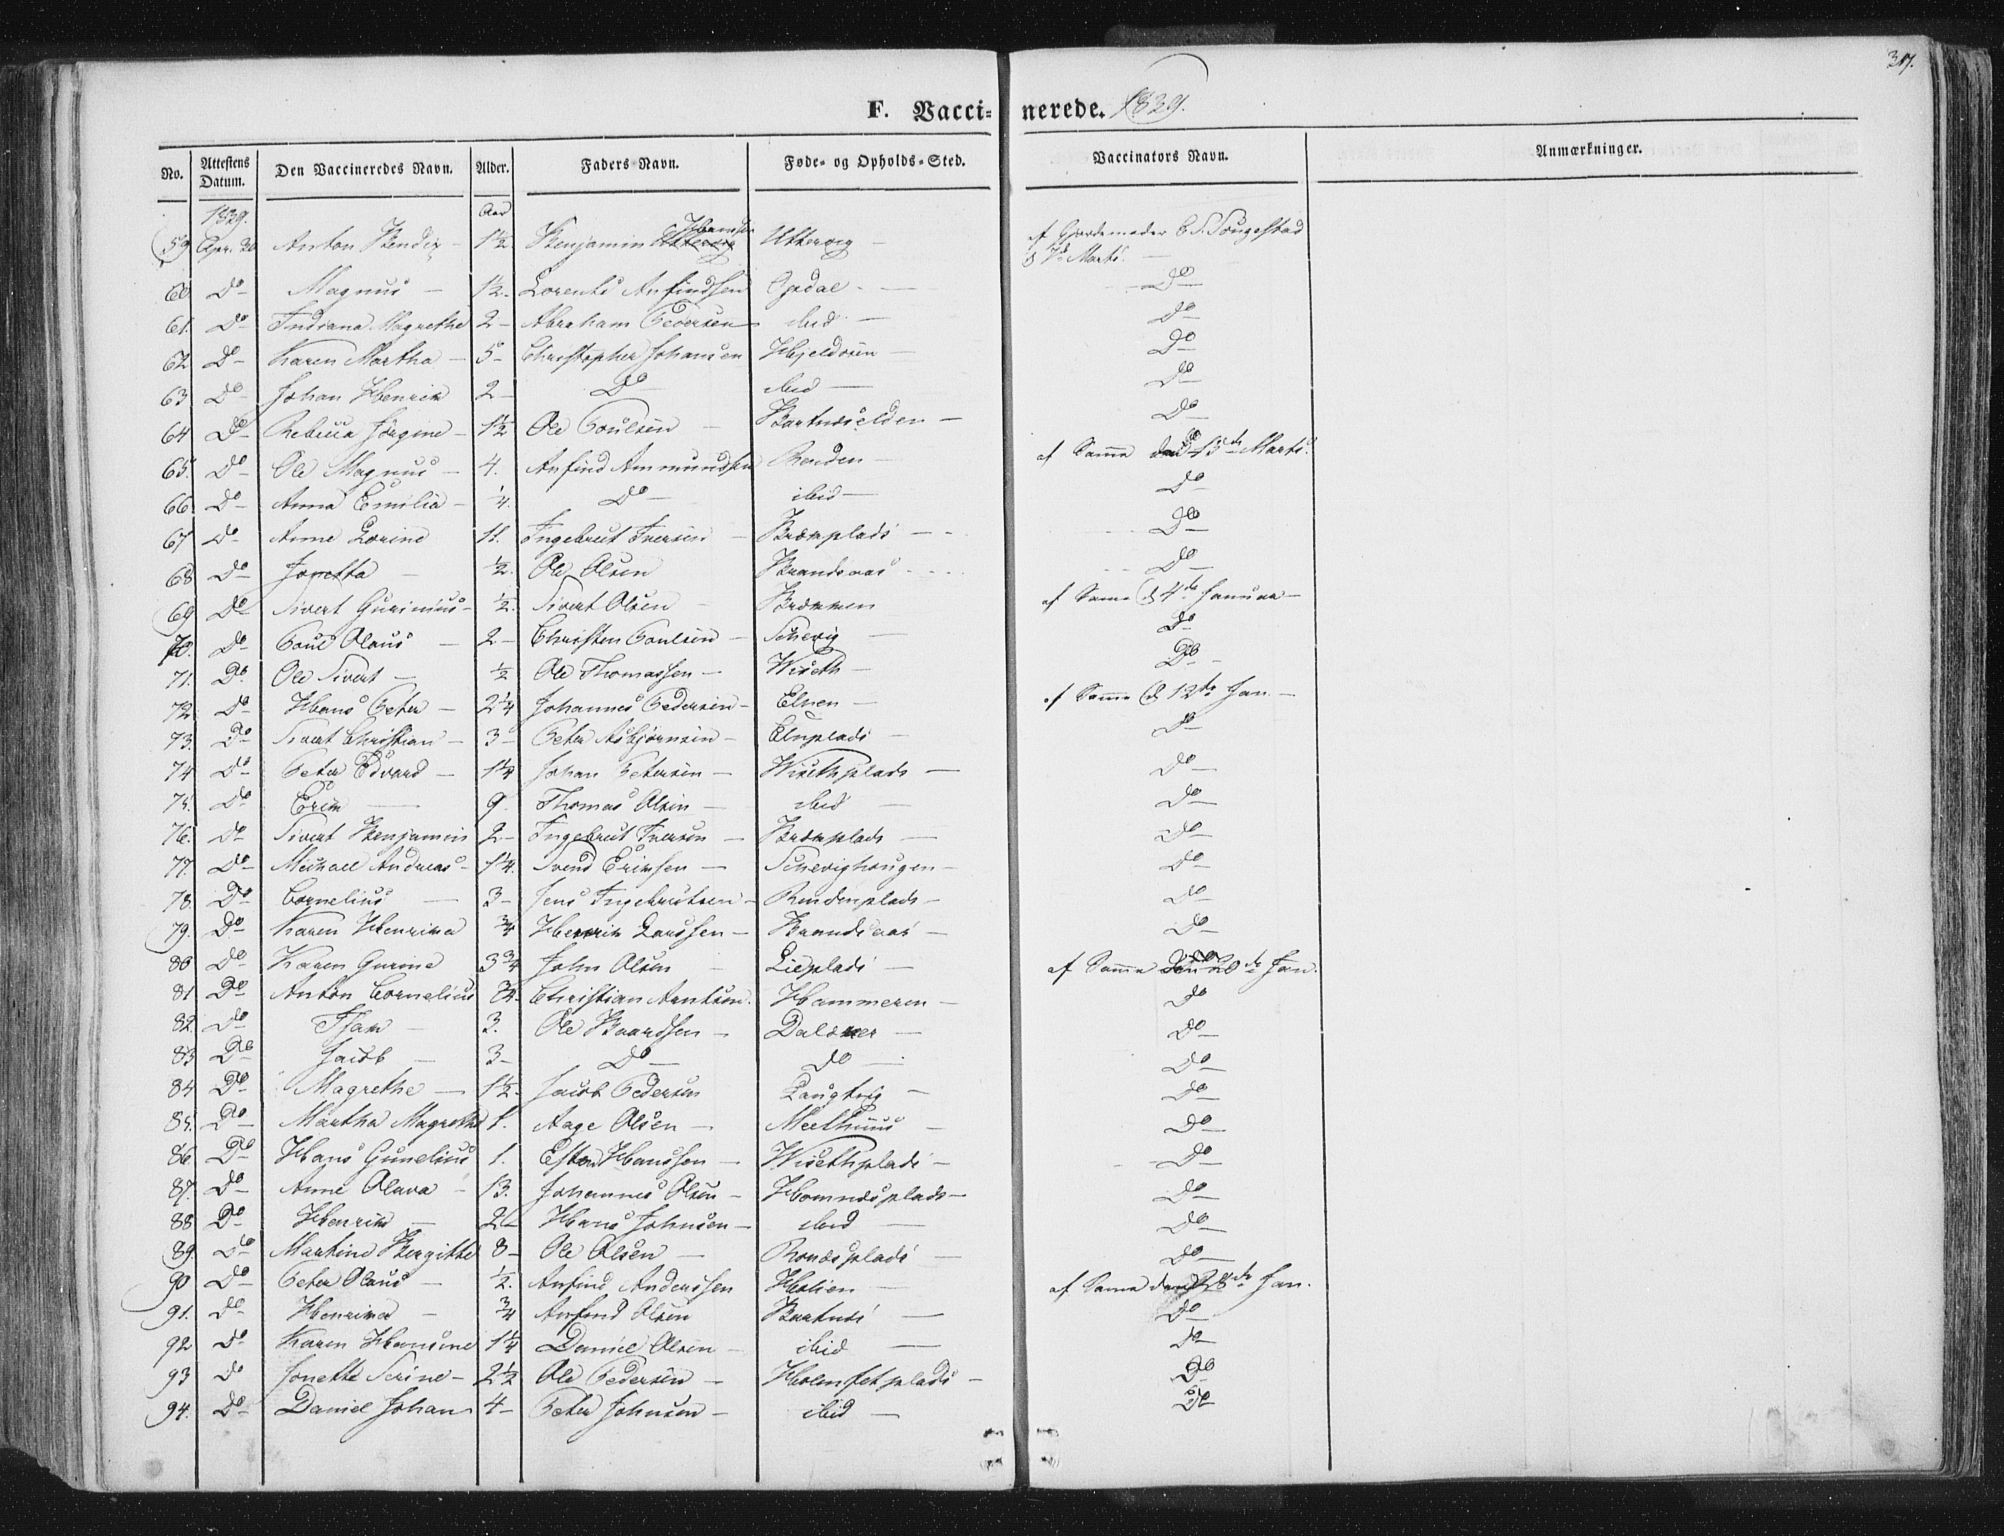 317.
F. Vaccinerede. 1839.
No. | Attestens Datum. | Den Vaccineredes Navn. | Alder. | Faders-Navn. | Føde- og Opholds-Sted. | Vaccinators Navn. | Anmærkninger.
1839. Aar
59 Apr. 30 Anton Bendix – 1½ Benjamin Hansen Utterøig – af Gjordemoder
d 7de Marts. –
60 Do – Magnus – 1½ Lorents Anfindsen Opdal – Do
61. Do Indiana Magrethe 2 – Abraham Pedersen ibid – Do
62 Do – Karen Martha – 5 – Christopher Johansen Hjeldøen – Do
63 Do – Johan Henrik 2 – Do – ibid – Do
64 Do – Rebecca Jørgine – 1½ Ole Poulsen – Bartnæselden – Do
65. Do – Ole Magnus – 4. Anfind Ammundsen Renden – af Samme 15de Marts.
66 Do – Anna Emilia – ¼. Do – ibid – Do
67 Do – Anne Lorine 11. Ingebrut Iversen – Brækplads – Do
68 Do – Jonetta – ½. Ole Olsen Brandsaas – Do
69 Do – Sivert Gurinius – ½. Sivert Olsen – Brækken af Samme d 4de Januar –
70. Do – Poul Olaus – 2 – Christen Poulsen – Schevig – Do
71. Do. Ole Sivert – ½ Ole Thomassen – Wiseth – Do –
72 Do – Hans Peter – 2¼ Johannes Pedersen – Elnen – af Samme d 12te Jan. –
73. Do – Sivert Christian – 3 – Peter Asbjørnsen – Elnplads – Do
74 Do – Peter Edvard – 1¼ Johan Petersen – Wisethplads – Do –
75. Do – Erik – 9. Thomas Olsen – ibid – Do
76. Do – Sivert Benjamin 2 – Ingebrut Iversen – Brækplads – Do
77. Do – Michael Andreas – 1¼. Svend Eriksen – Schevighougen – Do
78. Do – Cornelius – 3 – Jens Ingebrutsen – Rendenplads – Do
79. Do – Karen Henrika ¾ Henrik Larssen – Brandsaas – Do
80 Do – Karen Gurine 3¾ John Olsen – Lieplads – af Samme 20de Jan.
81 Do – Anton Cornelius ¾. Christian Arntsen. Hammeren – Do
82. Do – Isak – 3. Ole Baardsen – Dalsaer – Do
83 Do – Jacob – 3 – Do – do – Do
84 Do – Magrethe – 1½. Jacob Pedersen – Do
85. Do – Martha Magrethe 1. Aage Olsen – Meelhuus – Do
86 Do – Hans Gunelius 1. Esten Hanssen – Wisethplads – Do
87. Do – Anne Olava – 13. Johannes Olsen – Homnesplads – Do
88 Do – Henrik – 2 – Hans Johnsen – ibid – Do
89. Do – Martine Bergithe 8 – Ole Olsen – Ronæsplads – Do
90 Do – Peter Olaus – ½. Anfind Anderssen Holien – af Samme 28de Jan.
91. Do – Henrika – ¾ Anfind Olsen Bartnæs – Do
92 Do – Karen Hansine 1¼ Daniel Olsen – ibid – Do
93 Do Jonette Serine – 2½ Ole Pedersen – Holmsetplads – Do
94. Do – Daniel Johan 4 – Peter Johnsen – ibid – Do